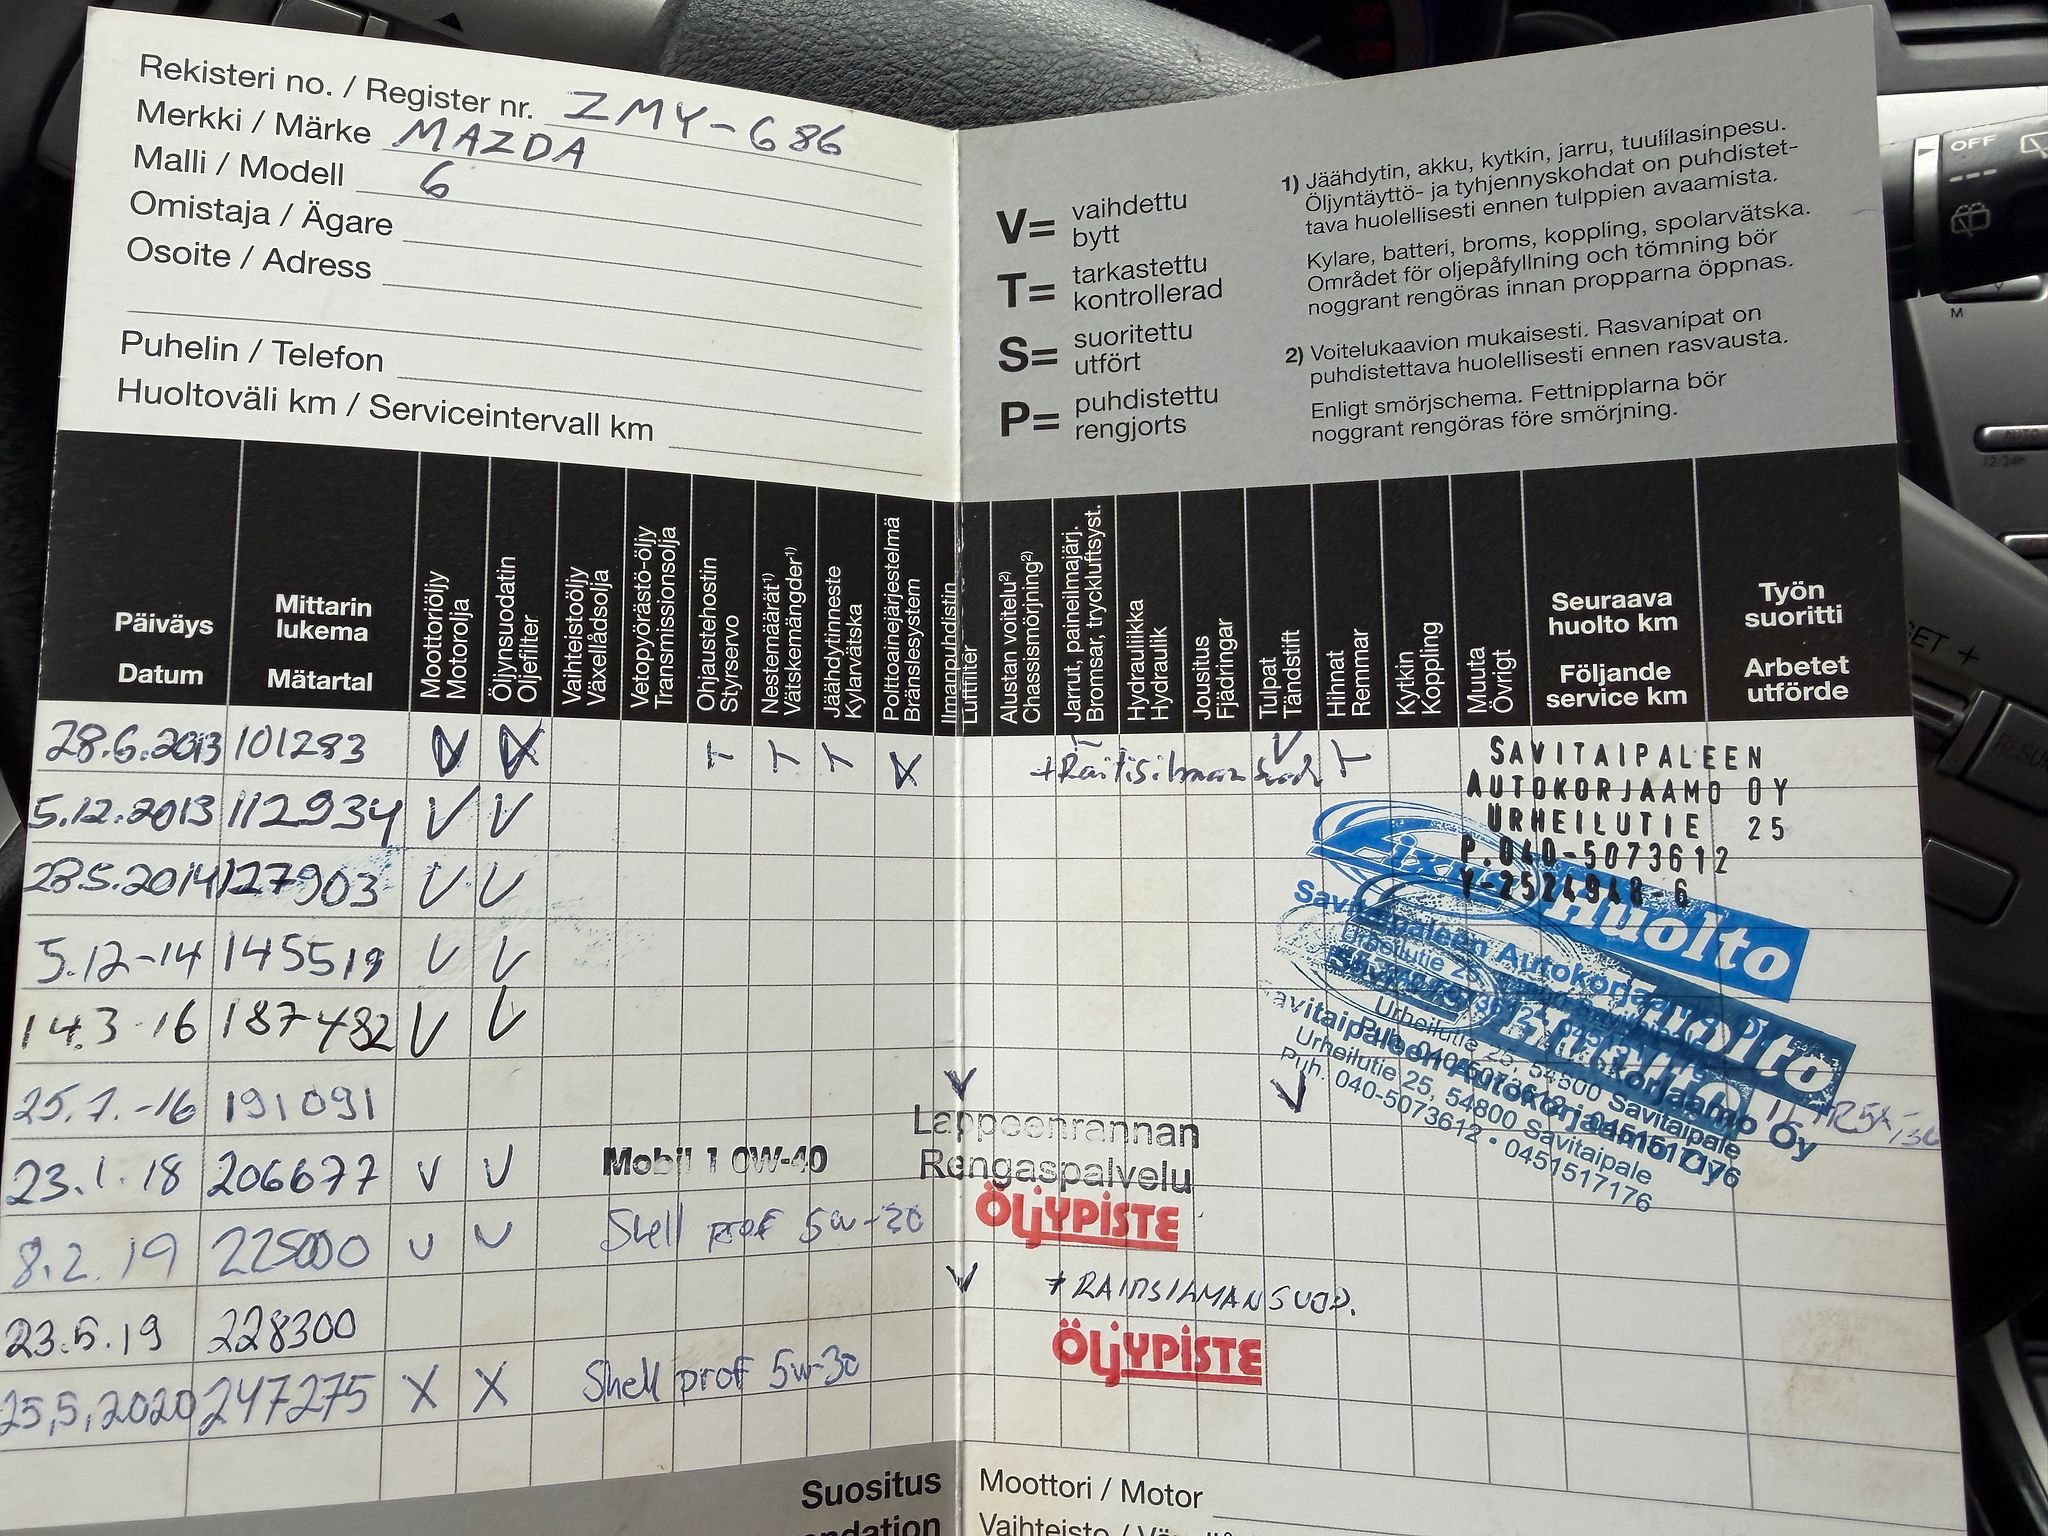 Rekisteri no. / Register nr. ZMY-686
Merkki / Märke MAZDA
Malli / Modell 6
Omistaja / Ägare
Osoite / Adress
Puhelin / Telefon
Huoltoväli km / Serviceintervall km
V= vaihdettu
bytt
T= tarkastettu
kontrollerad
S= suoritettu
utfört
P= puhdistettu
rengjorts
1) Jäähdytin, akku, kytkin, jarru, tuulilasinpesu.
Öljyntäyttö- ja tyhjennyskohdat on puhdistet-
tava huolellisesti ennen tulppien avaamista.
Kylare, batteri, broms, koppling, spolarvätska.
Området för oljepåfyllning och tömning bör
noggrant rengöras innan propparna öppnas.
2) Voitelukaavion mukaisesti. Rasvanipat on
puhdistettava huolellisesti ennen rasvausta.
Enligt smörjschema. Fettnipplarna bör
noggrant rengöras före smörjning.
Päiväys
Datum
Mittarin
lukema
Mätartal
Moottoriöljy
Motorolja
Öljynsuodatin
Oljefilter
Vaihteistoöljy
Växellådsolja
Vetopyörästö-öljy
Transmissionsolja
Ohjaustehostin
Styrservo
Nestemäärät1)
Vätskemängder1)
Jäähdytinneste
Kylarvätska
Polttoainejärjestelmä
Bränslesystem
Ilmanpuhdistin
Luftfilter
Alustan voitelu2)
Chassismörjning2)
Jarrut, paineilmajärj.
Bromsar, tryckluftsyst.
Hydrauliikka
Hydraulik
Jousitus
Fjädringar
Tulpat
Tändstift
Hihnat
Remmar
Kytkin
Koppling
Muuta
Övrigt
Seuraava
huolto km
Följande
service km
Työn
suoritti
Arbetet
utförde
28.6.2013 101283 V V T T T V T V T
+Raitisilman suod
SAVITAIPALEEN
AUTOKORJAAMO OY
URHEILUTIE 25
P.040-5073612
Y-2524948-6
5.12.2013 112934 V V
28.5.2014 127903 V V
5.12-14 145519 V V
14.3-16 187482 V V
25.7.-16 191091 V V
23.1.18 206677 V V Mobil 1 0W-40 Lappeenrannan
Rengaspalvelu
8.2.19 225000 V V Shell prof 5w-30 ÖLJYPISTE
23.5.19 228300 V + RAITISILMAN SUOD.
25,5,2020 247275 X X Shell prof 5w-30 ÖLJYPISTE
Huolto
Savitaipaleen Autokorjaamo Oy
Urheilutie 25, 54800 Savitaipale
Puh. 040-5073612 • 0451517176
Suositus
Moottori / Motor
OFF
M